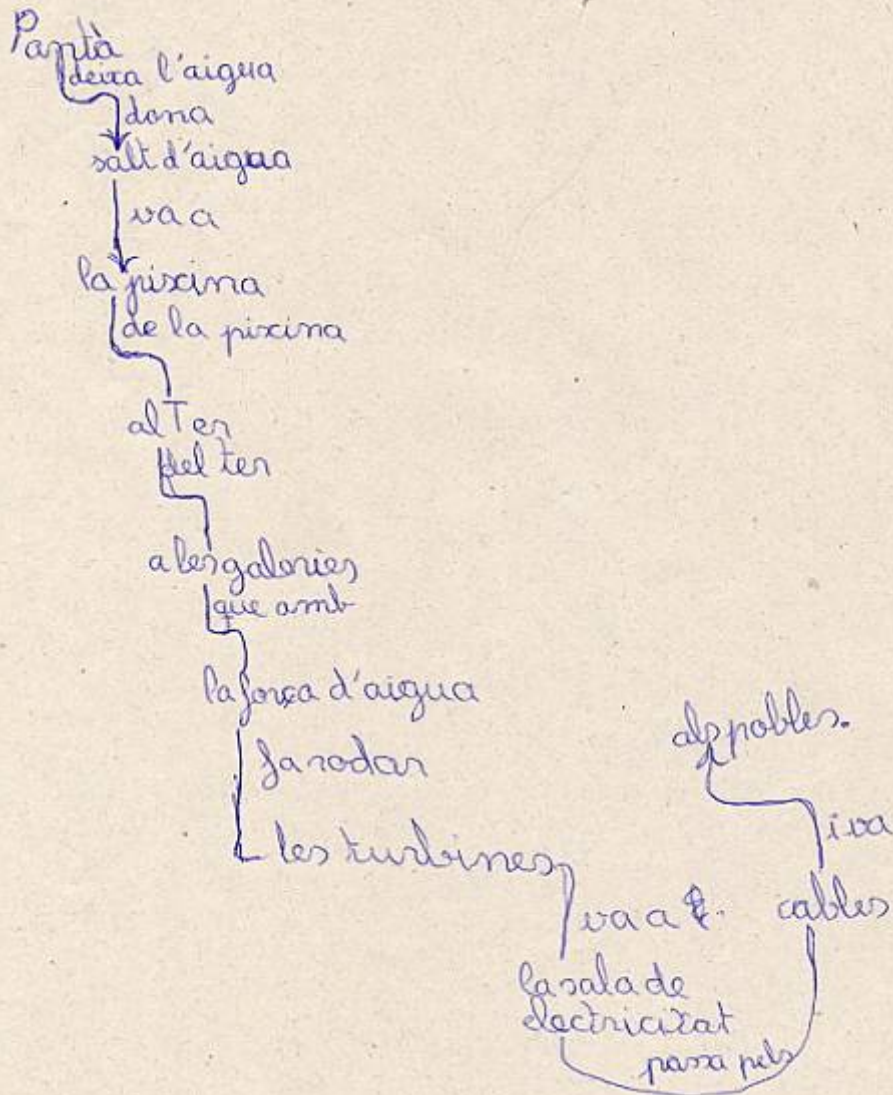 Pantà
deixa l'aigua
dona
salt d'aigua
va a
la piscina
de la piscina
al Ter
del ter
a les galeries
que amb
la força d'aigua
fa rodar
les turbines
va a
la sala de
electricitat
passa pels
cables
i va
als pobles.